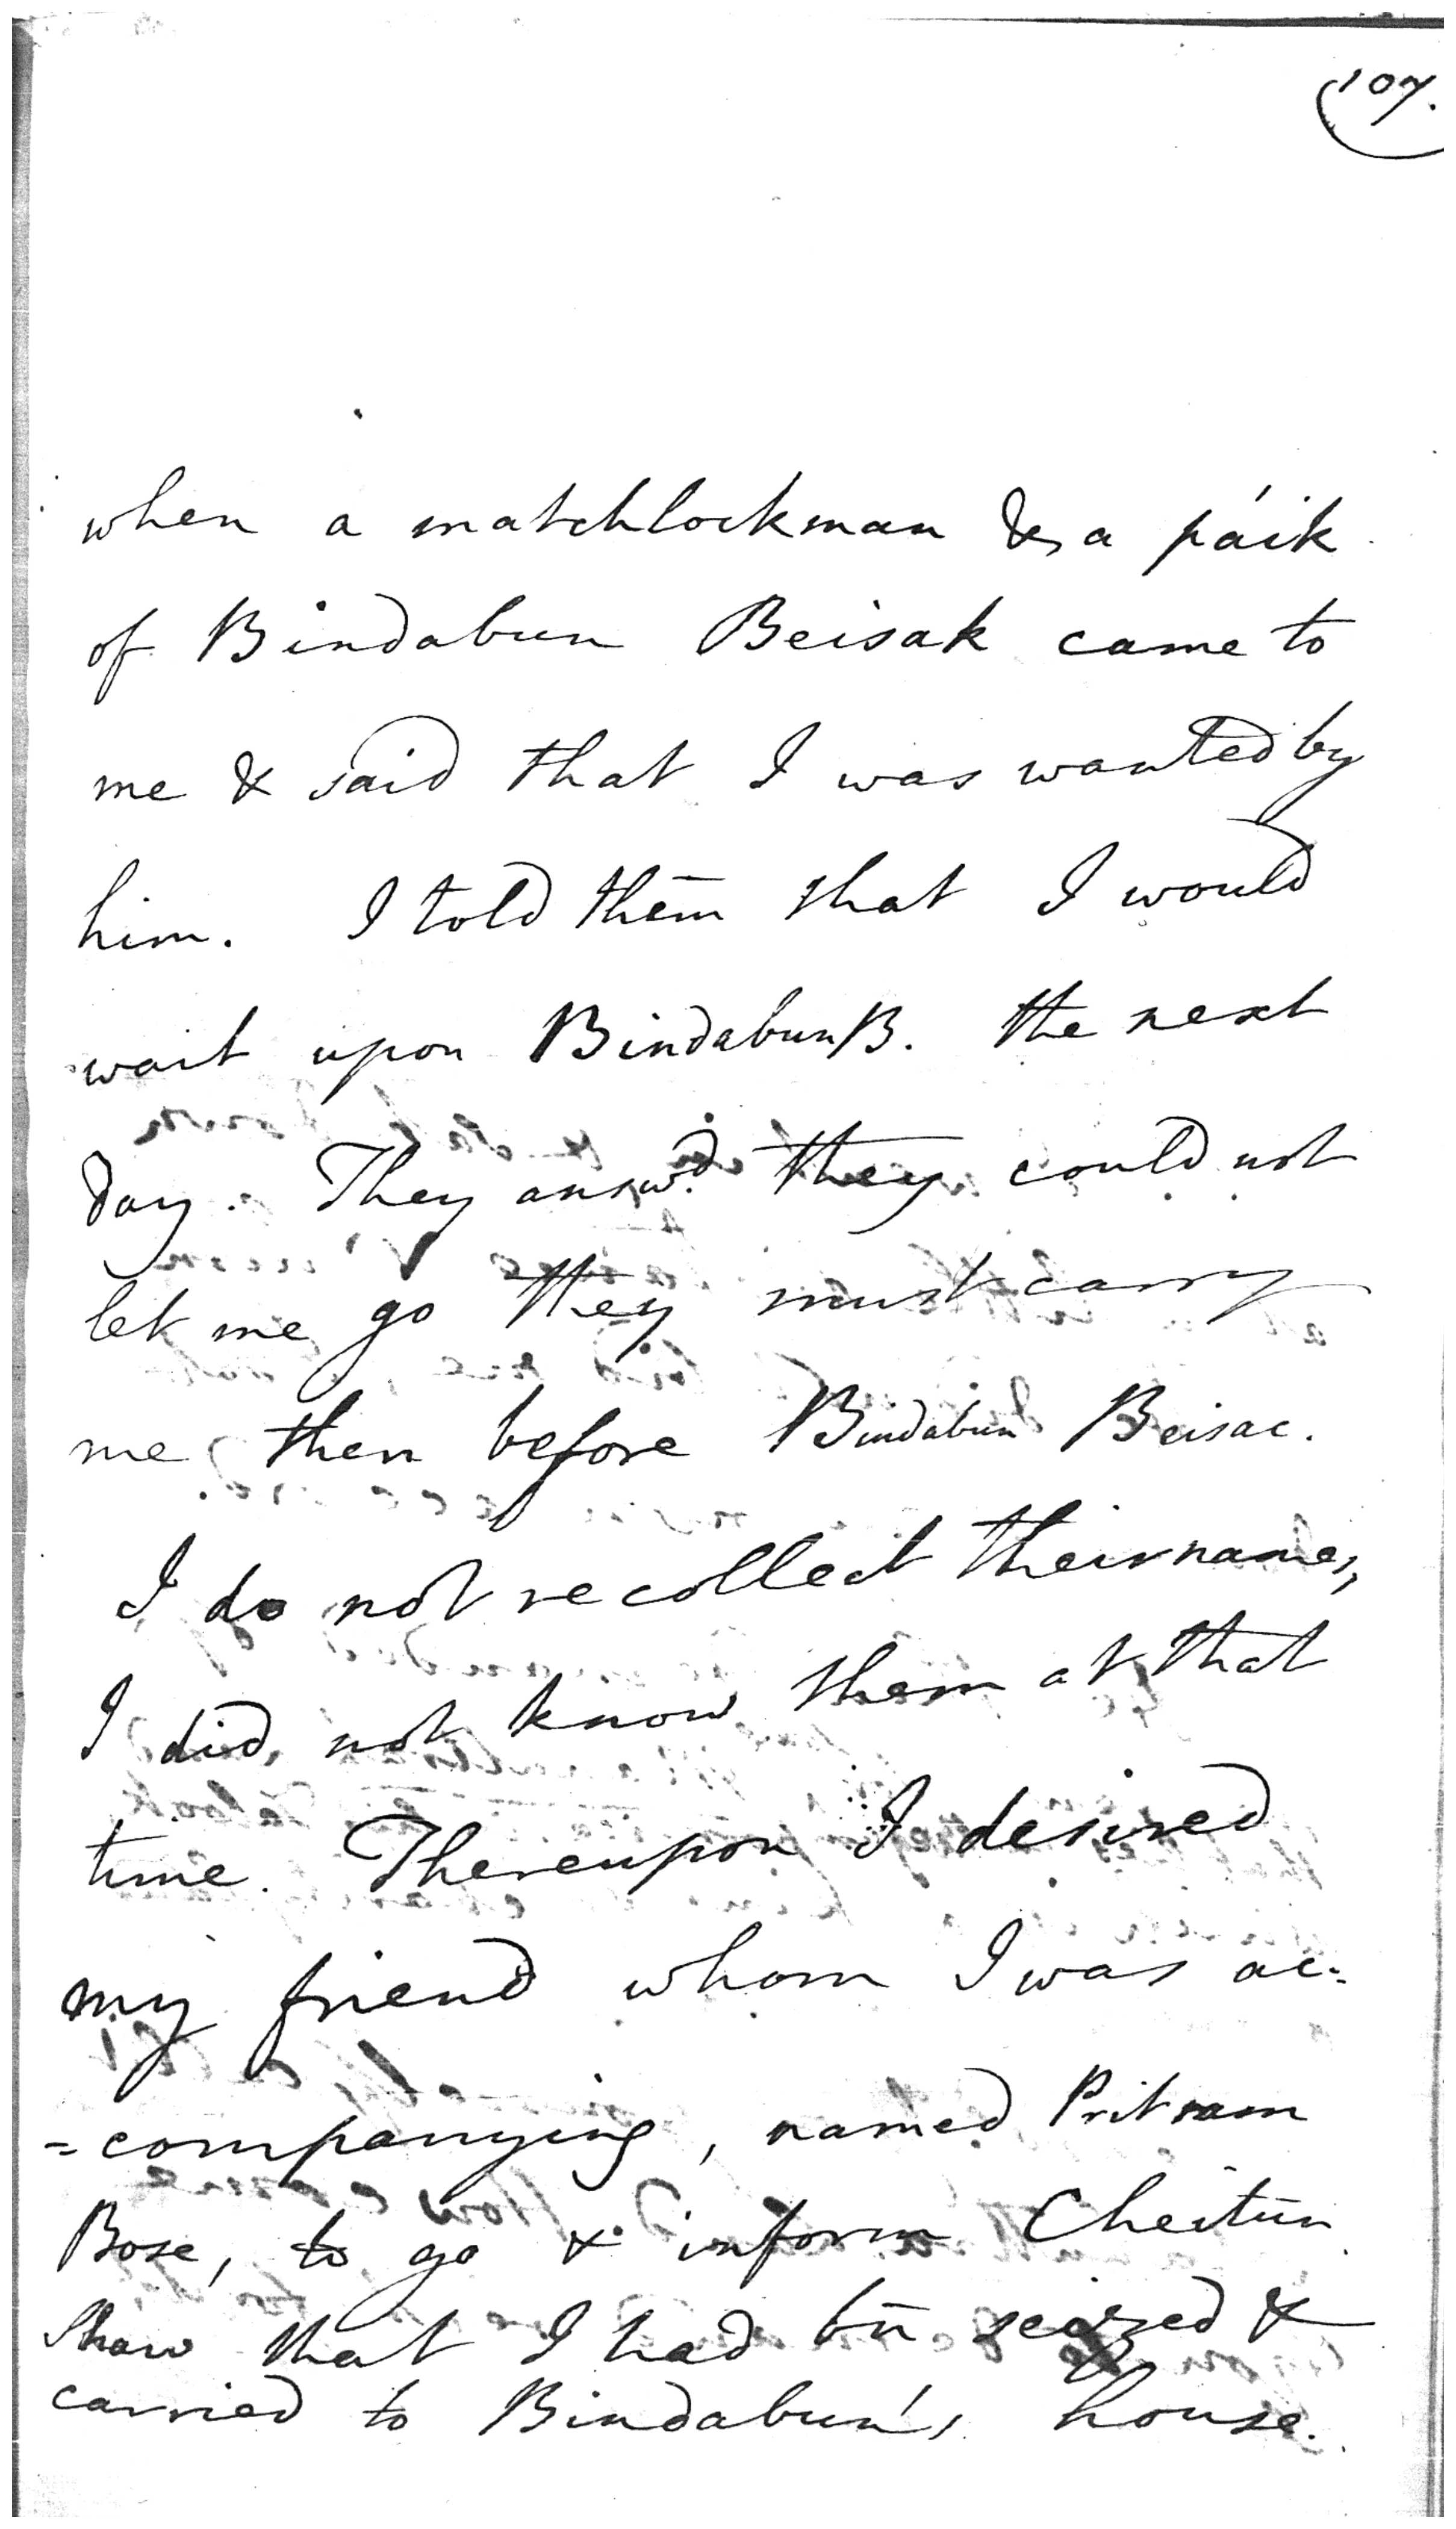 107.
when a matchlockman & a páik
of Bindabun Beisak came to
me & said that I was wanted by
him. I told them that I would
wait upon Bindabun B. the next
day. They answd. they could not
let me go they must carry
me then before Bindabun Beisac.
I do not recollect their names,
I did not know them at that
time. Thereupon I desired
my friend whom I was ac-
=companying, named Pritram
Bose, to go & inform Cheitun
Shaw that I had bn seized &
carried to Bindabun's house.